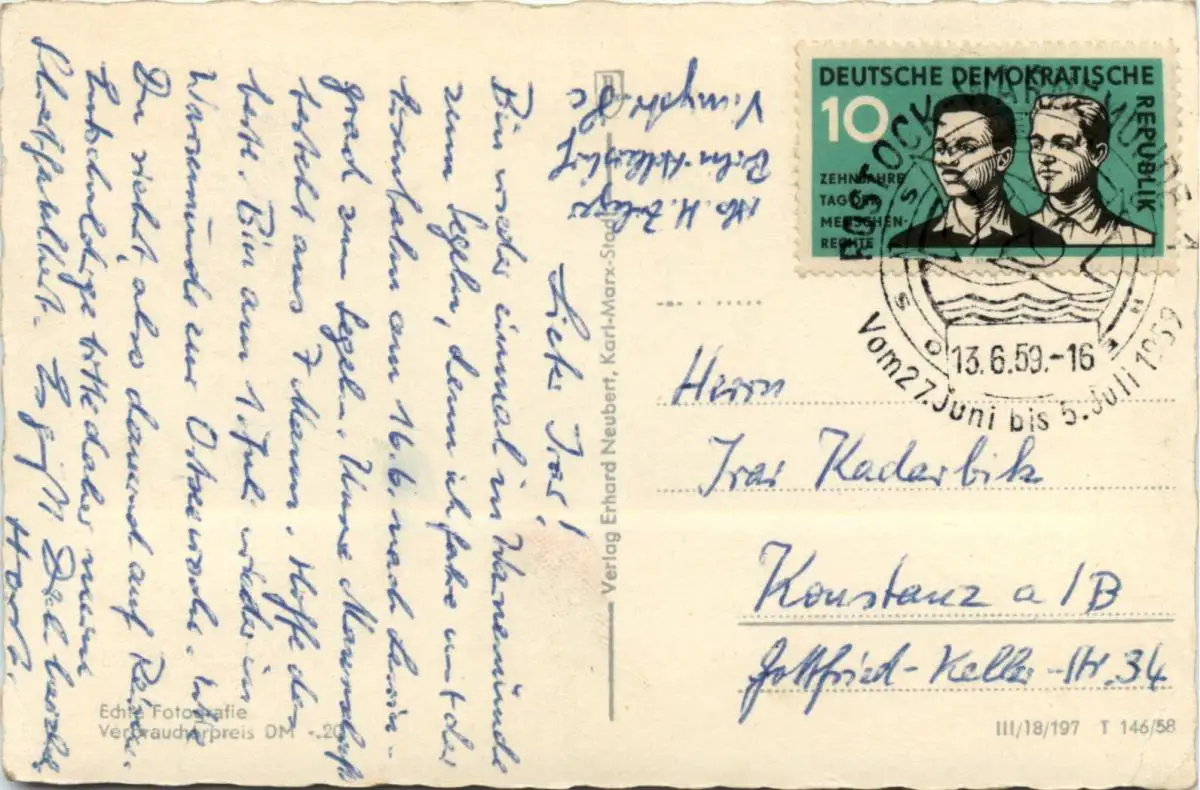 DEUTSCHE DEMOKRATISCHE
REPUBLIK
10
ZEHN JAHRE
TAG DER
MENSCHEN-
RECHTE
ROSTOCK-WARNEMÜNDE
13.6.59.-16
Vom 27. Juni bis 5. Juli 1959
Abs. H.
Berlin-
Lieber Irar!
Bin wieder einmal in Warnemünde
zum Segeln, denn ich fahre mit der
am 16.6. nach Lenin-
grad zum Segeln. Unsere Mannschaft
besteht aus 7 Mann. Hoffe das
beste. Bin am 1. Juli wieder in
Warnemünde zur Ostseewoche. Wie
Du siehst, also dauernd auf Reisen.
Entschuldige bitte daher meine
Schreibfaulheit. Es grüßt Dich herzlich
Horst.
Herrn
Irar Kadarbik
Konstanz a/B
Gottfried-Keller-Str. 34
Verlag Erhard Neubert, Karl-Marx-Stadt
Echte Fotografie
Verbraucherpreis DM -.20
III/18/197 T 146/58